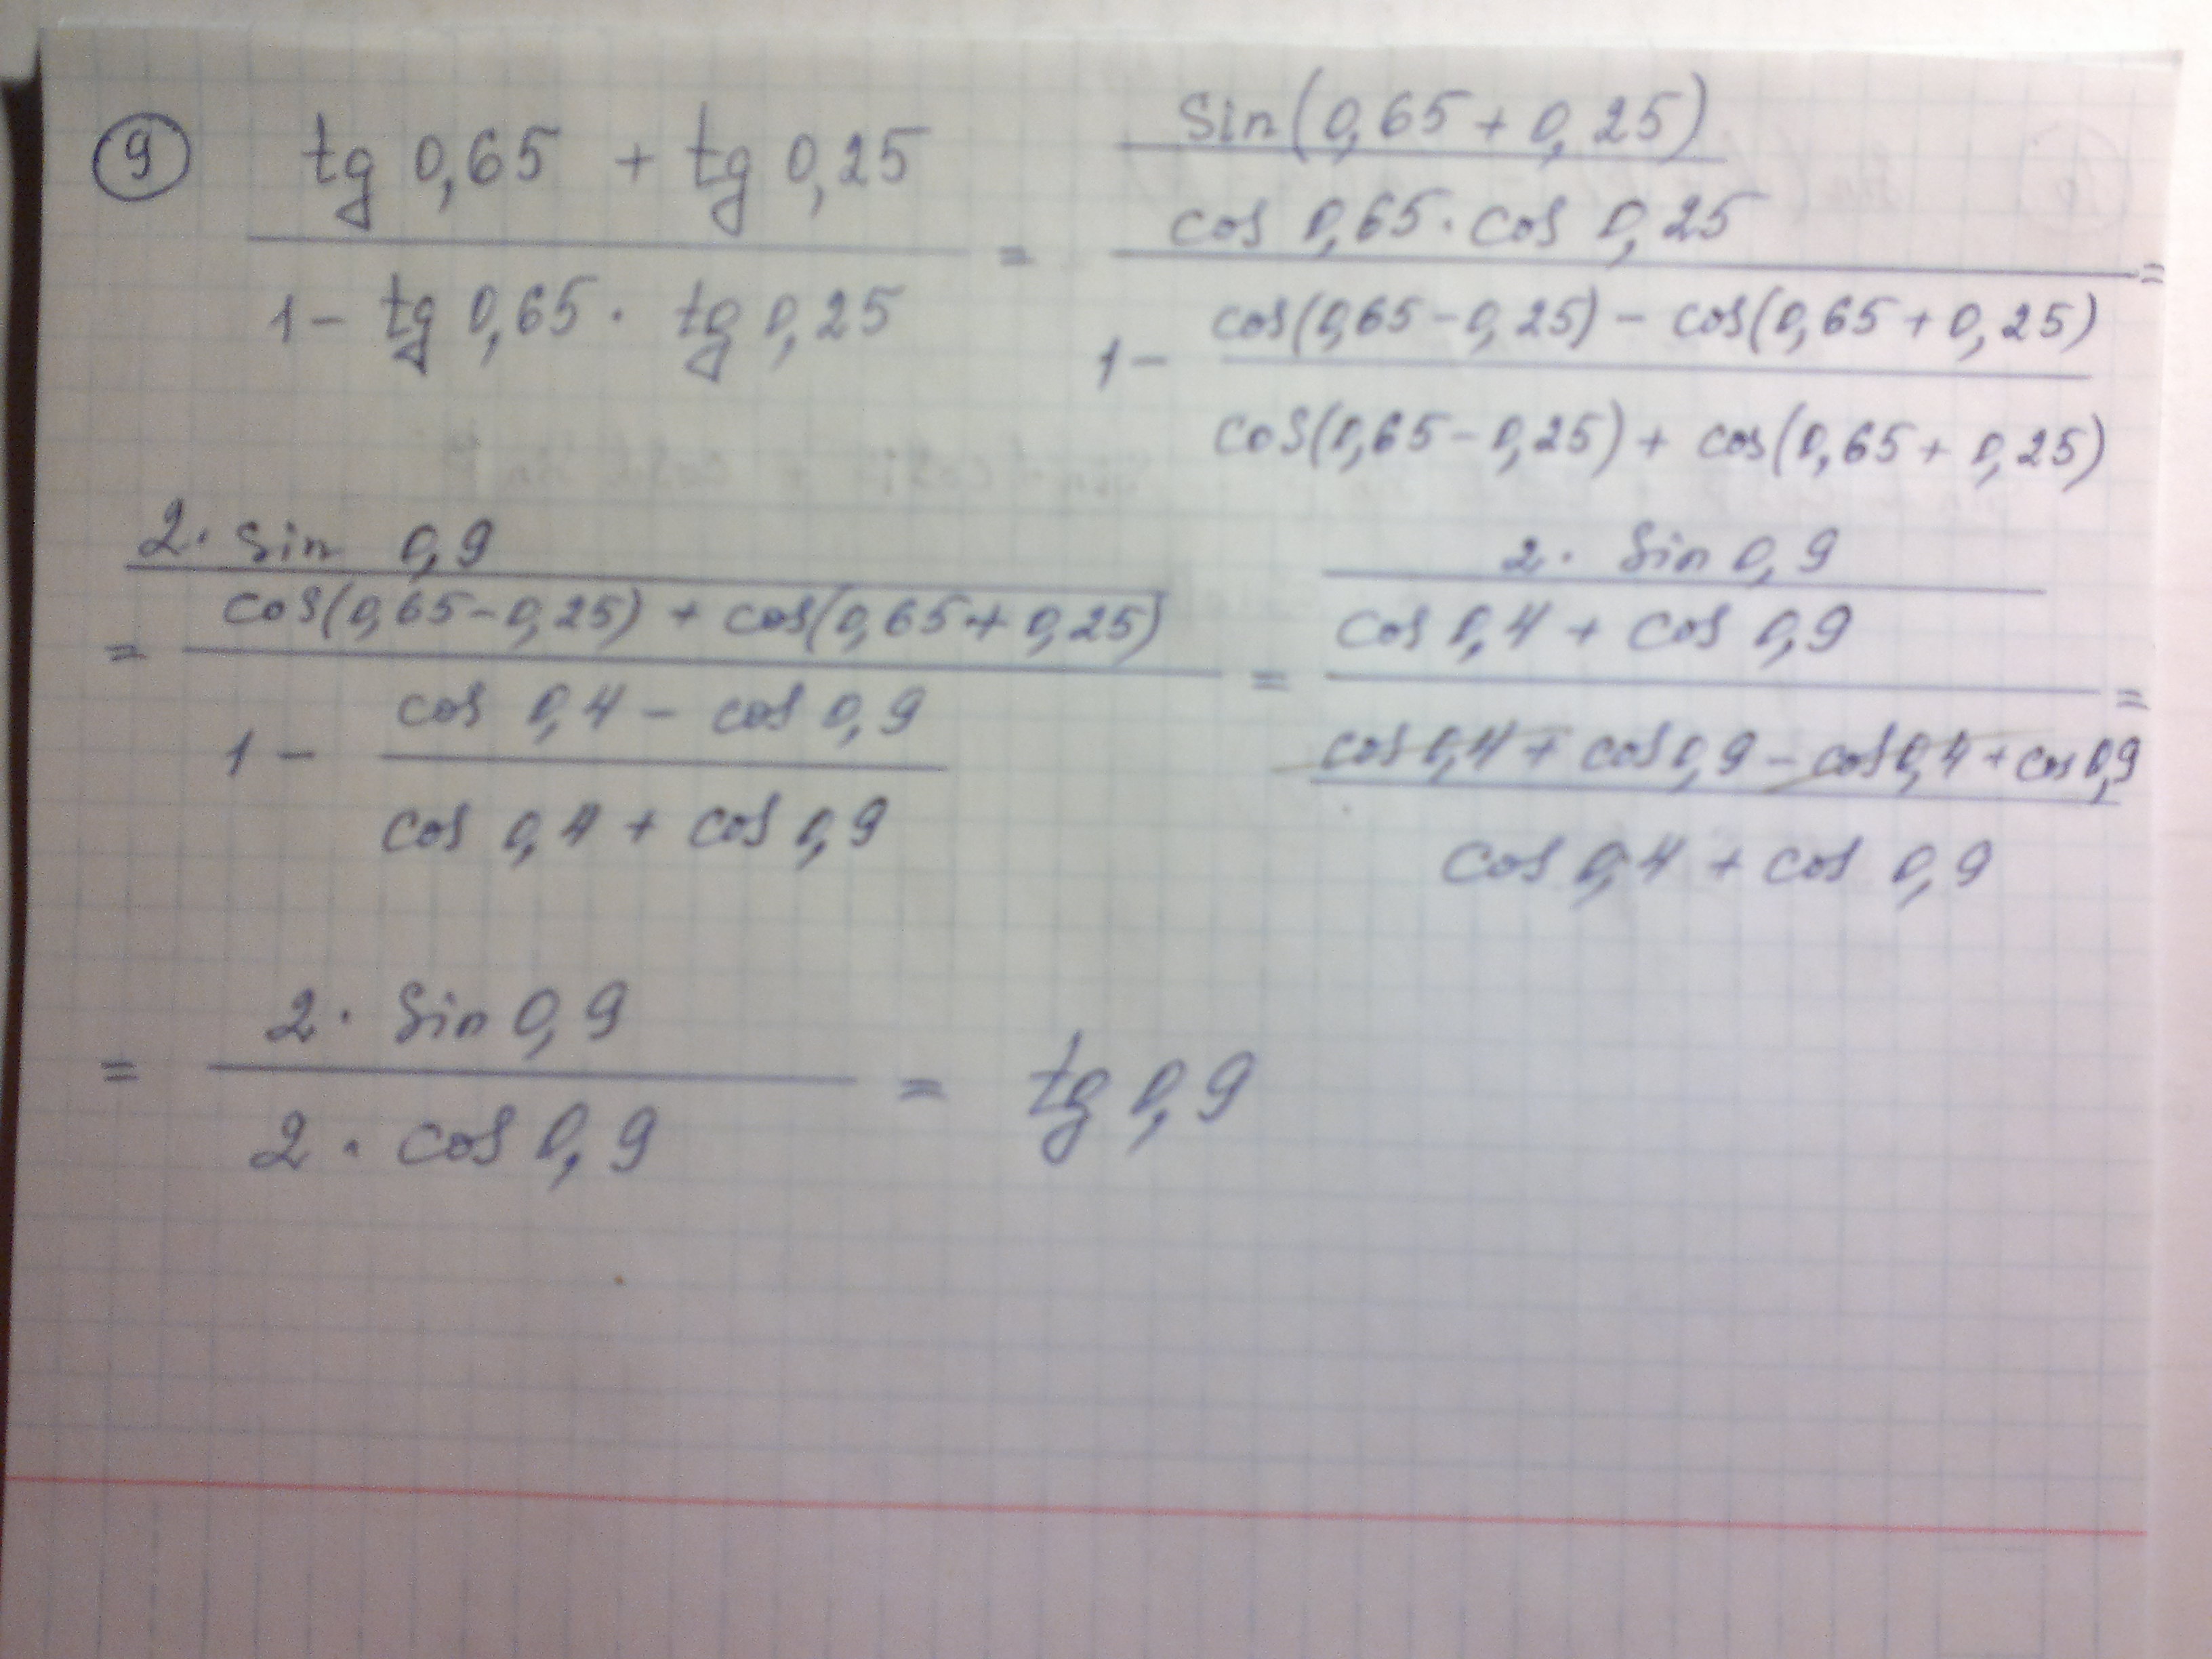 9 tg 0,65 + tg 0,25 / 1 - tg 0,65 · tg 0,25 = sin(0,65 + 0,25) / cos 0,65 · cos 0,25 / 1 - cos(0,65 - 0,25) - cos(0,65 + 0,25) / cos(0,65 - 0,25) + cos(0,65 + 0,25) =
= 2 · sin 0,9 / cos(0,65 - 0,25) + cos(0,65 + 0,25) / 1 - cos 0,4 - cos 0,9 / cos 0,4 + cos 0,9 = 2 · sin 0,9 / cos 0,4 + cos 0,9 / cos 0,4 + cos 0,9 - cos 0,4 + cos 0,9 / cos 0,4 + cos 0,9 =
= 2 · sin 0,9 / 2 · cos 0,9 = tg 0,9